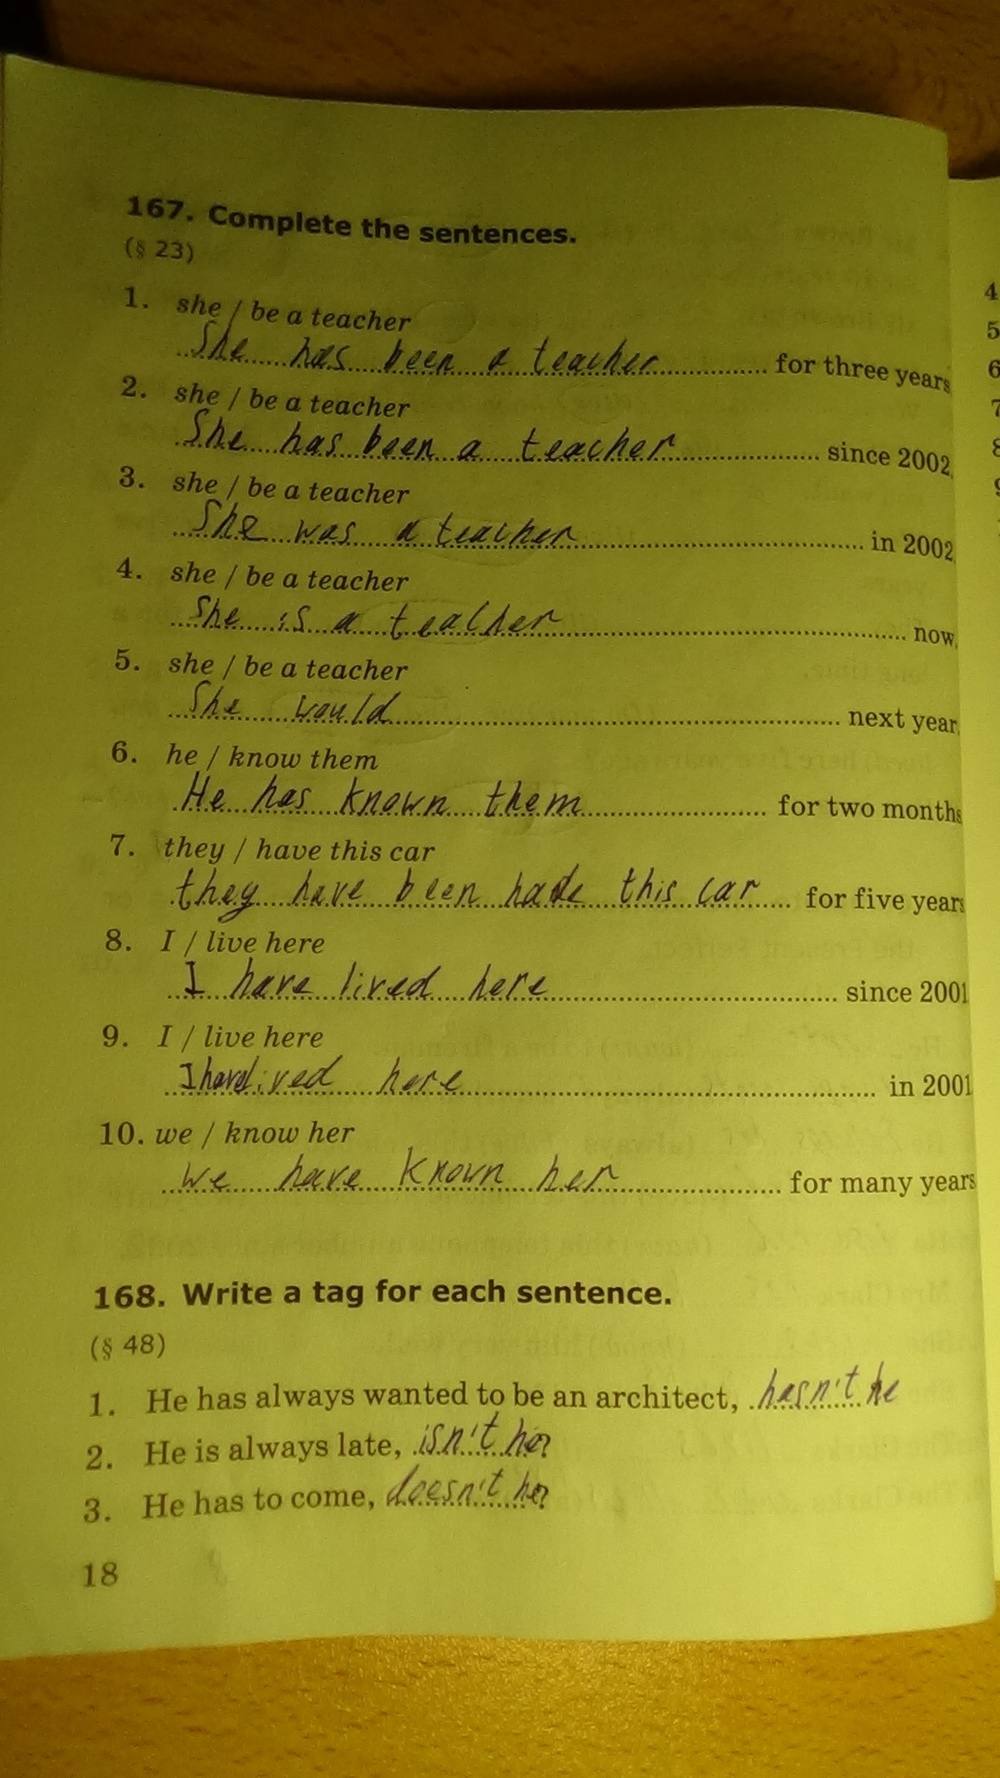 167. Complete the sentences.
(§ 23)
1. she / be a teacher
She has been a teacher for three years
2. she / be a teacher
She has been a teacher since 2002
3. she / be a teacher
She was a teacher in 2002
4. she / be a teacher
She is a teacher now.
5. she / be a teacher
She would next year
6. he / know them
He has known them for two months
7. they / have this car
they have been this car for five years
8. I / live here
I have lived here since 2001
9. I / live here
I have lived here in 2001
10. we / know her
we have known her for many years
168. Write a tag for each sentence.
(§ 48)
1. He has always wanted to be an architect, hasn't he
2. He is always late, isn't he?
3. He has to come, doesn't he?
18
4
5
6
7